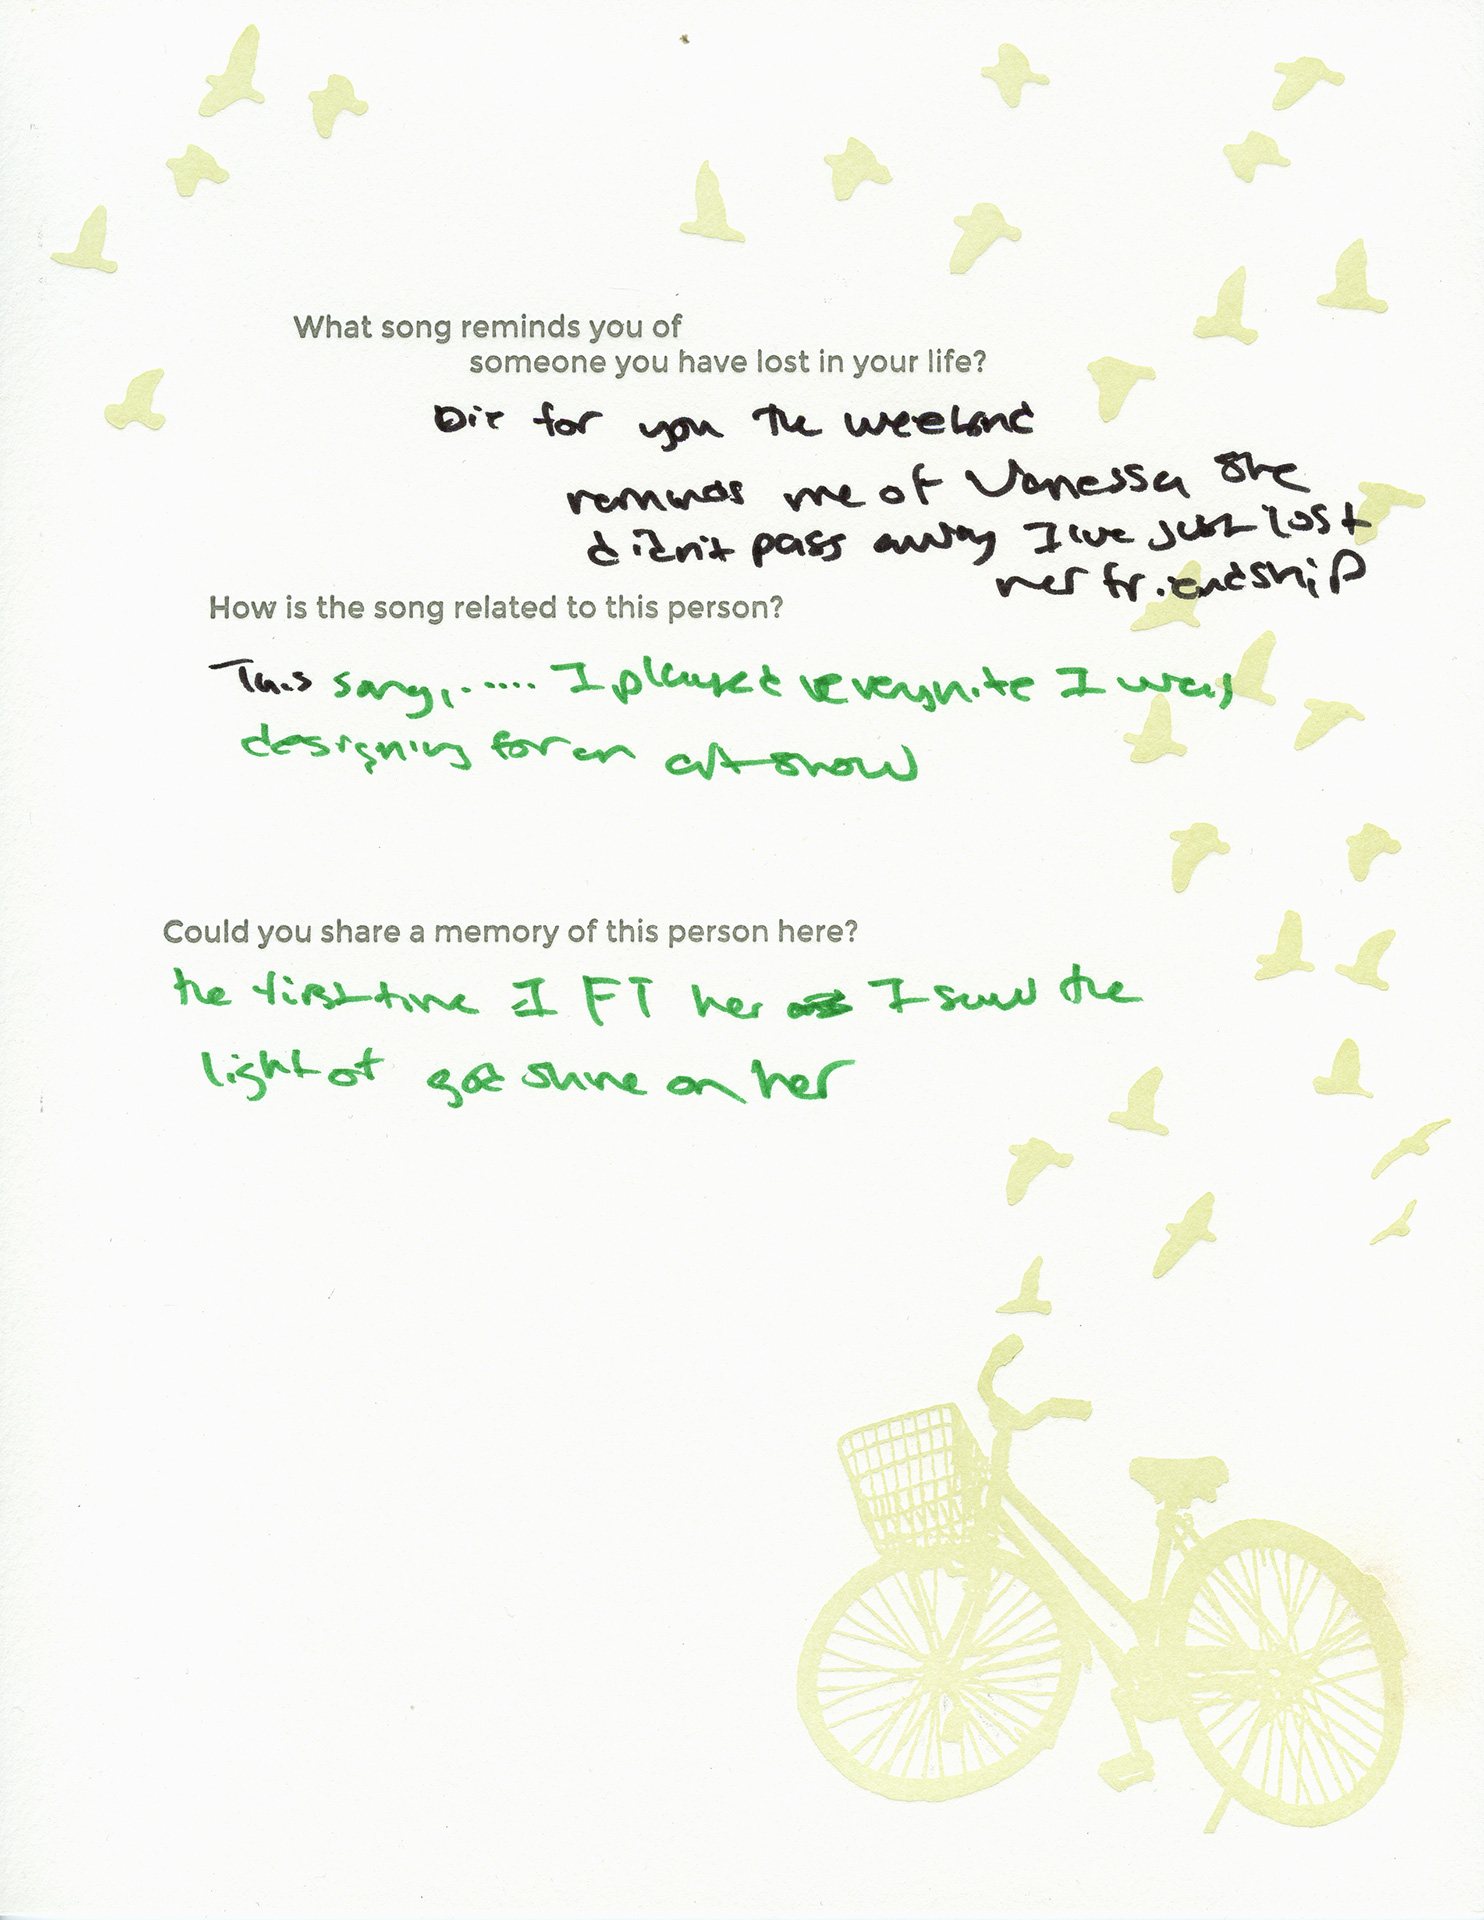 What song reminds you of
someone you have lost in your life?
Die for you The weekend
reminds me of Vanessa She
didn't pass away I've just lost
her friendship
How is the song related to this person?
This song,..... I played everynite I was
designing for an art show
Could you share a memory of this person here?
the first time I FT her I saw the
light of god shine on her